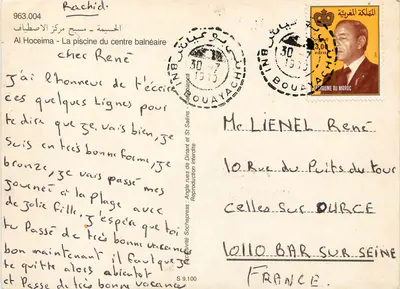 Rachid.
963.004
الحسيمة - مسبح مركز الاصطياف
Al Hoceima - La piscine du centre balnéaire
cher René
j'ai l'honneur de t'écrire
ces quelques lignes pour
te dire que je vais bien, je
suis en très bonne forme, je
bronze, je vais passé mes
journeé à la plage avec
de jolie fille, j'espère que toi
tu Passé de très bonne vacance
bon maintenant il faut que je
te quitte alors abientot
et Passe de très bonne vacance
Angle rues de Dinant et St Saëns
Reproduction interdite
S 9.100
BNI BOUAYACH
30
المملكة المغربية
ROYAUME DU MAROC
Mr LIENEL René
10 Rue du Puits du tour
Celles Sur OURCE
10110 BAR SUR SEINE
FRANCE.